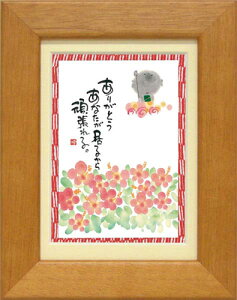 ありがとう
あなたが居るから
頑張れるよ。